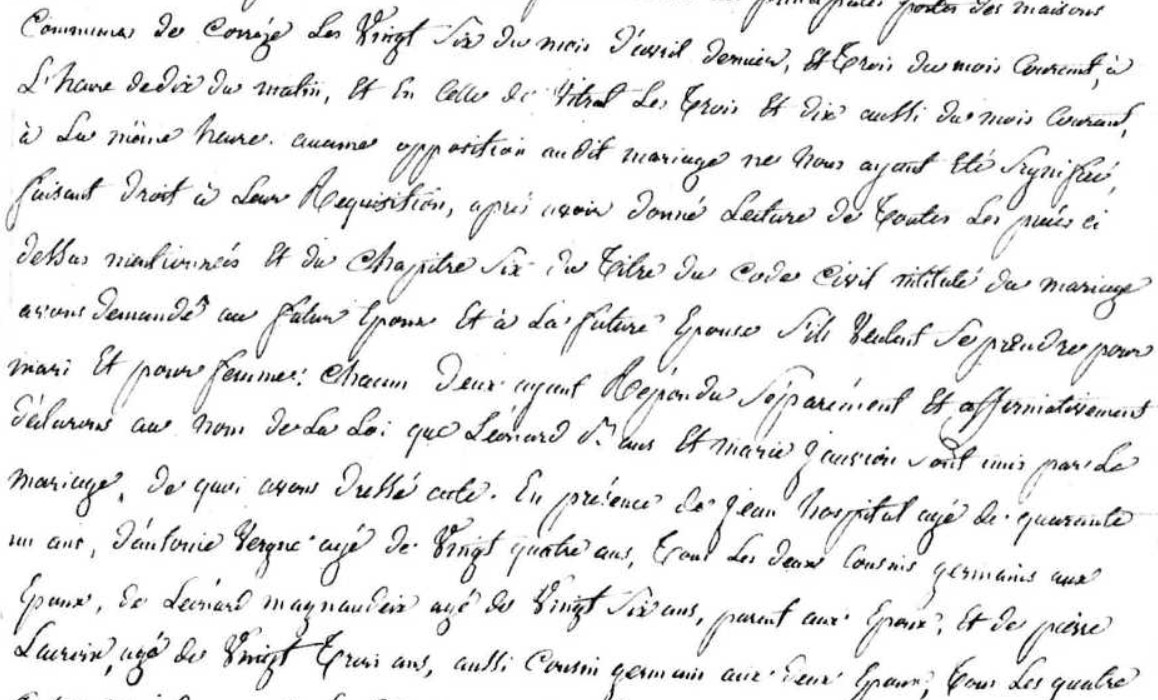 principales portes des maisons
Communes de Corrèze les Vingt Six du mois d'avril dernier, Et Trois du mois Courant, à
L'heure de dix du matin, Et En Celle de Vitrat les Trois Et dix aussi du mois Courant,
à La même heure. aucune opposition audit mariage ne Nous ayant Eté Signifiée,
faisant Droit à Leur Requisition, après avoir Donné Lecture de Toutes Les pièces ci
dessus mentionnées Et du Chapitre Six du Titre du Code Civil intitulé du mariage
avons demandé au futur Epoux Et à La future Epouse S'ils Veulent Se prendre pour
mari Et pour femme: Chacun Deux ayant Répondu Séparément Et affirmativement
Déclarons au Nom de La Loi que Léonard Et marie sont unis par Le
mariage, de quoi avons Dressé acte. En présence de jean hospital agé de quarante
un ans, d'antoine Vergne agé de Vingt quatre ans, Tous Les deux Cousins germains aux
Epoux, de Léonard magnaudeix agé de Vingt Six ans, parent aux Epoux, Et de pierre
Lacroix, agé de Vingt Trois ans, aussi Cousin germain aux Deux Epoux, Tous Les quatre